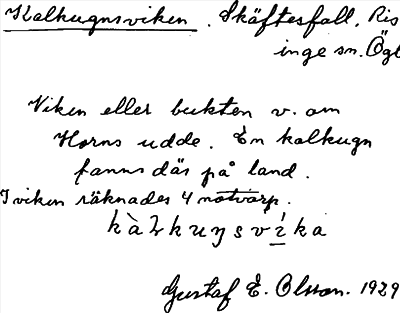 Kalkugnsviken. Skäftesfall, Ris
inge sn. Ögl
Viken eller bukten v. om
Horns udde. En kalkugn
fanns där på land.
I viken räknades 4 notvarp.
kàlkuŋsvíka
Gustaf E. Olsson. 1929